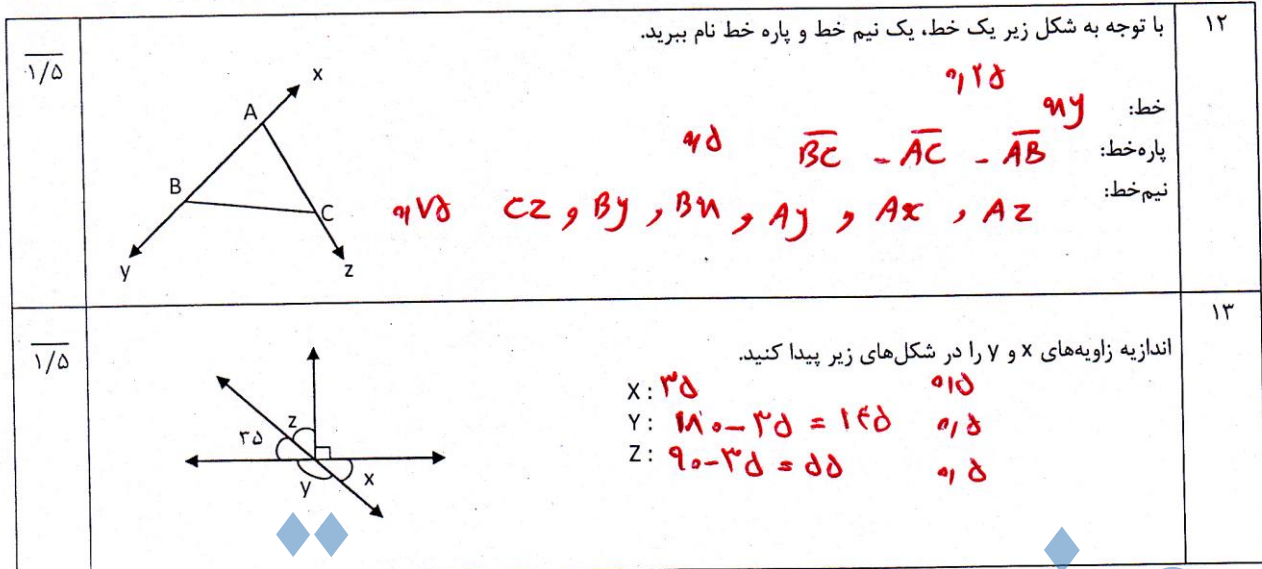 ۱۲
با توجه به شکل زیر یک خط، یک نیم خط و پاره خط نام ببرید.
۱/۵
خط: xy ۰/۲۵
پاره‌خط: AB - AC - BC ۰/۵
نیم‌خط: Az , Ax , Ay , Bx , By , Cz ۰/۷۵
x
A
B
C
y
z
۱۳
اندازیه زاویه‌های x و y را در شکل‌های زیر پیدا کنید.
۱/۵
X: ۳۵ ۰/۵
Y: ۱۸۰-۳۵ = ۱۴۵ ۰/۵
Z: ۹۰-۳۵ = ۵۵ ۰/۵
z
۳۵
y
x